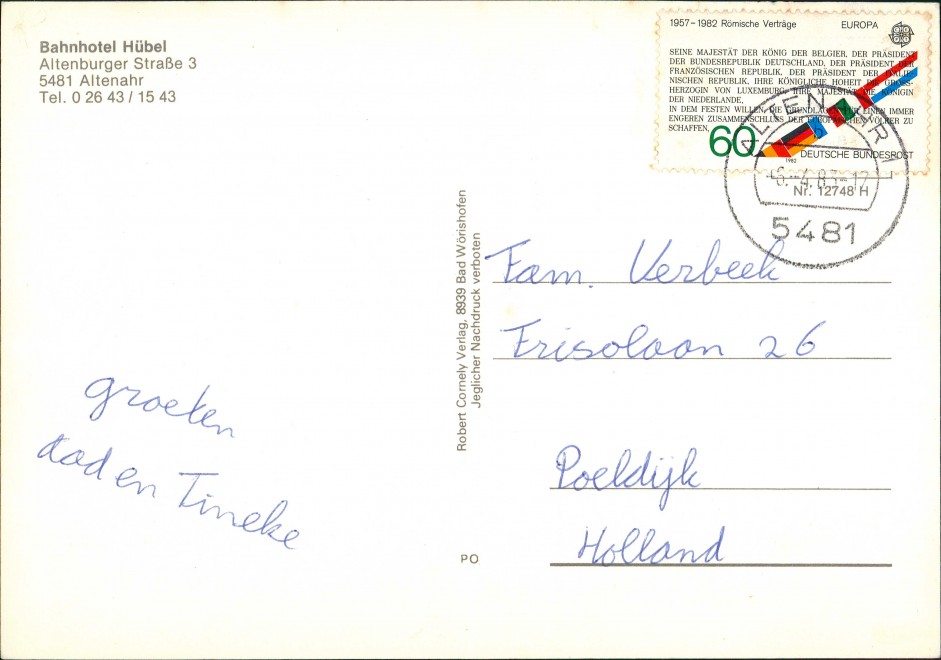 Bahnhotel Hübel
Altenburger Straße 3
5481 Altenahr
Tel. 0 26 43 / 15 43
1957–1982 Römische Verträge EUROPA
SEINE MAJESTÄT DER KÖNIG DER BELGIER, DER PRÄSIDENT
DER BUNDESREPUBLIK DEUTSCHLAND, DER PRÄSIDENT DER
FRANZÖSISCHEN REPUBLIK, DER PRÄSIDENT DER ITALIE-
NISCHEN REPUBLIK, IHRE KÖNIGLICHE HOHEIT DIE GROSS-
HERZOGIN VON LUXEMBURG, IHRE MAJESTÄT DIE KÖNIGIN
DER NIEDERLANDE,
IN DEM FESTEN WILLEN, DIE GRUNDLAGEN FÜR EINEN IMMER
ENGEREN ZUSAMMENSCHLUSS DER EUROPÄISCHEN VÖLKER ZU
SCHAFFEN,
60
1982
DEUTSCHE BUNDESPOST
ALTENAHR 1
b
6.-4.83-17
Nr. 12748 H
5481
Robert Cornely Verlag, 8939 Bad Wörishofen
Jeglicher Nachdruck verboten
Fam. Verbeek
Frisoloon 26
Poeldijk
Holland
groeten
aad en Tineke
PO